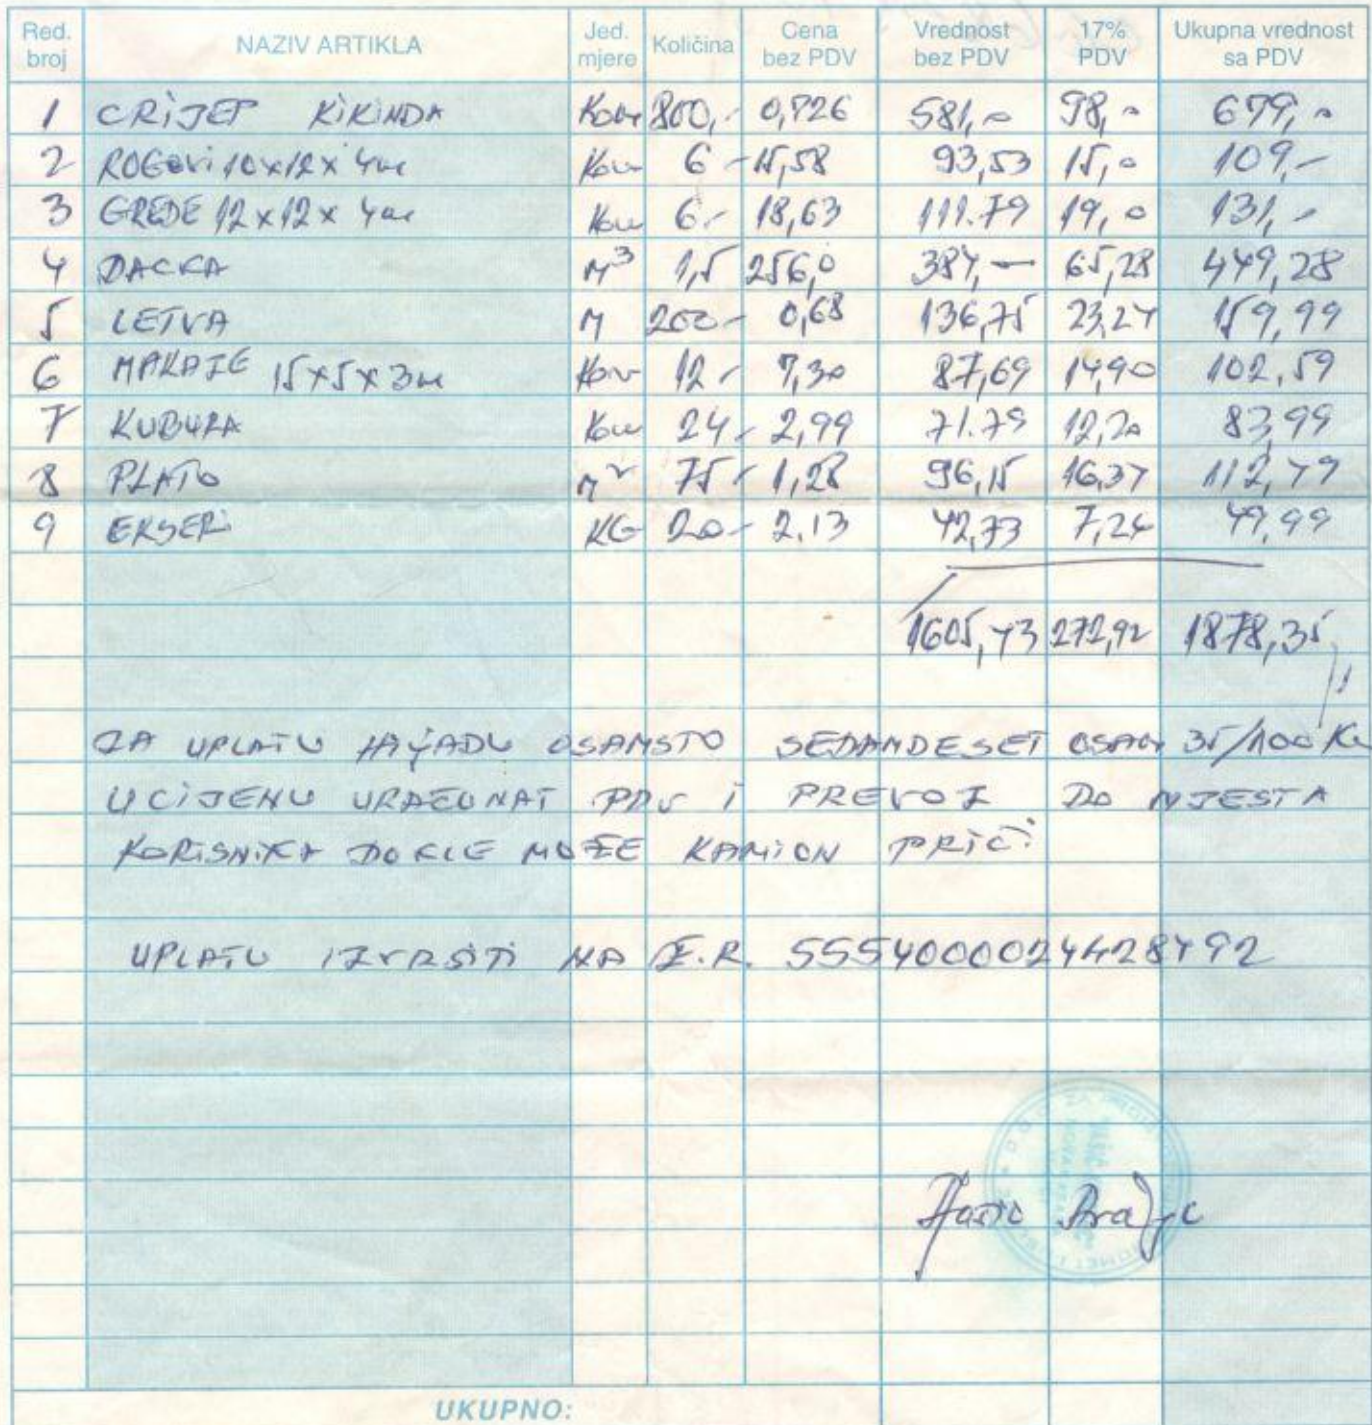 Red. broj NAZIV ARTIKLA Jed. mjere Količina Cena bez PDV Vrednost bez PDV 17% PDV Ukupna vrednost sa PDV
1 CRIJEP KIKINDA Kom 800,- 0,726 581,- 98,- 679,-
2 ROGOVI 10x12x4m Kom 6- 15,58 93,53 15,0 109,-
3 GREDE 12x12x4m Kom 6- 18,63 111.79 19,0 131,-
4 DACKA M³ 1,5 256,0 384,- 65,28 449,28
5 LETVA M 200- 0,68 136,75 23,24 159,99
6 MAKAZE 15x5x3m Kom 12- 7,30 87,69 14,90 102,59
7 KUBURA Kom 24- 2,99 71.79 12,20 83,99
8 PLATO M² 75- 1,28 96,15 16,37 112,49
9 EKSERI KG 20- 2,13 42,73 7,24 49,99
1605,43 272,92 1878,35
ZA UPLATU HILJADU OSAMSTO SEDAMDESET OSAM 35/100 KM
U CIJENU URAČUNAT PDV I PREVOZ DO MJESTA
KORISNIKA DOKLE MOŽE KAMION PRIĆI
UPLATU IZVRŠITI NA Ž.R.
UKUPNO: